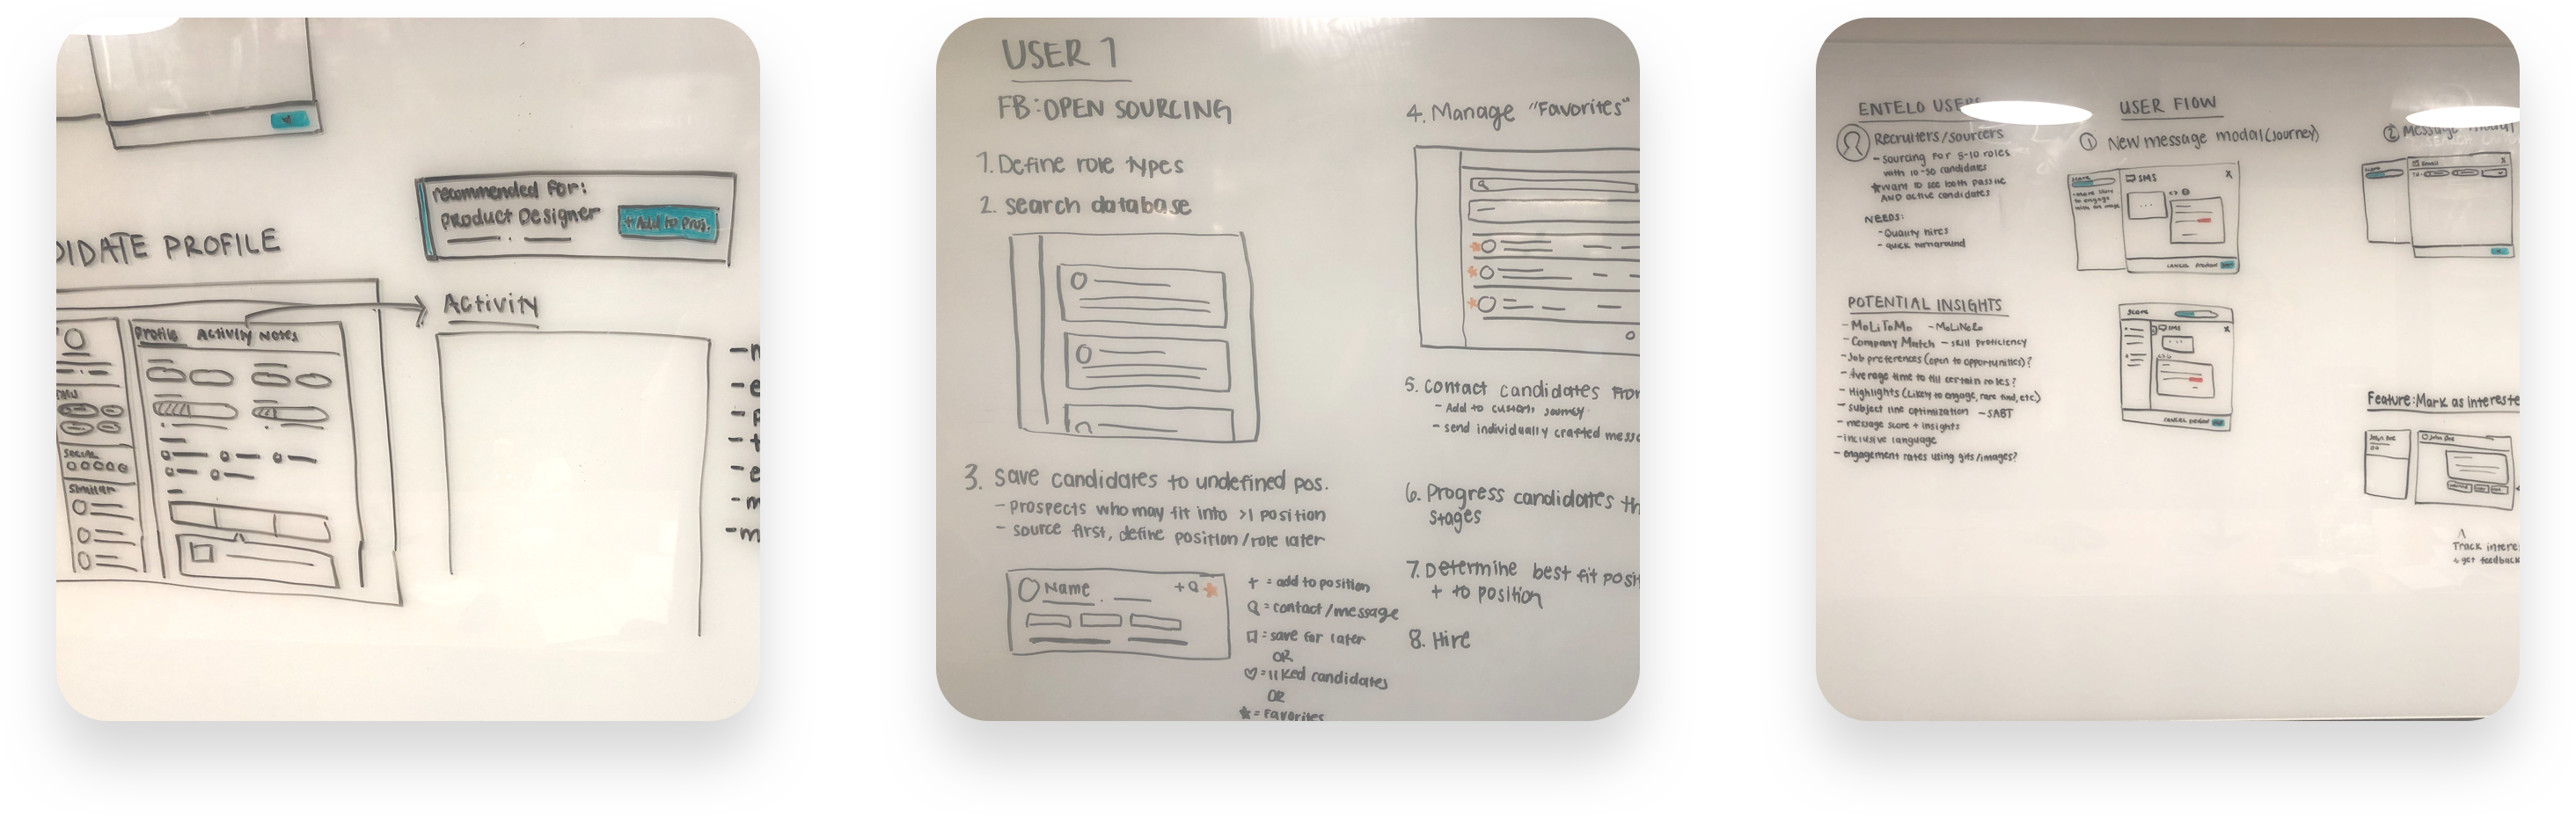 recommended for:
Product Designer
+Add to Pros.
DIDATE PROFILE
Activity
Profile Activity Notes
Social
Similar
USER 1
FB: OPEN SOURCING
1. Define role types
2. search database
3. save candidates to undefined pos.
- Prospects who may fit into >1 position
- source first, define position/role later
Name
+ = add to position
= contact/message
= save for later
OR
♡ = liked candidates
OR
★ = Favorites
4. Manage "Favorites"
5. Contact candidates
- Add to custom journey
- send individually crafted
6. Progress candidates th
stages
7. Determine best fit posi
+ to position
8. Hire
ENTELO USERS
Recruiters/sourcers
- sourcing for 5-10 roles
with 10-50 candidates
★ want to see both passive
AND active candidates
NEEDS:
- Quality hires
- quick turnaround
POTENTIAL INSIGHTS
- MoLiToMo - MoLiNeRo
- Company Match - skill proficiency
- Job preferences (open to opportunities)?
- Average time to fill certain roles?
- Highlights (Likely to engage, rare find, etc)
- subject line optimization - SABT
- message score + insights
- inclusive language
- engagement rates using gifs/images?
USER FLOW
① New message modal (journey)
Score
SMS
X
CANCEL
Score
SMS
X
CANCEL
② Message modal
Email
X
Feature: Mark as intereste
John Doe
Track intere
+ get feedback